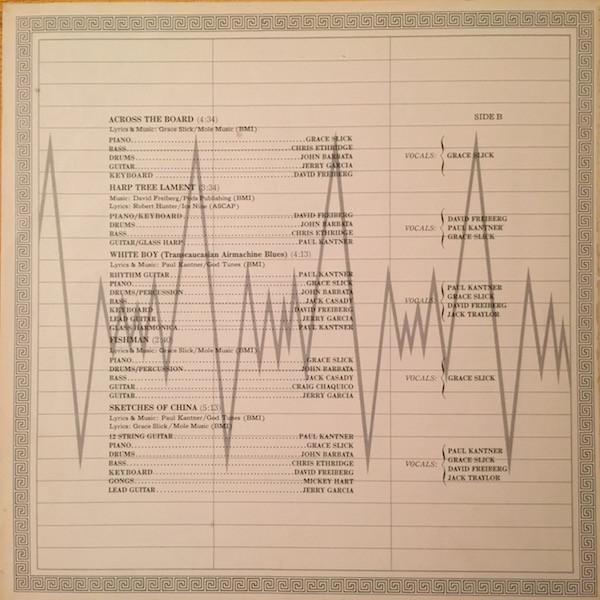 SIDE B
ACROSS THE BOARD (4:34)
Lyrics & Music: Grace Slick/Mole Music (BMI)
PIANO GRACE SLICK
BASS CHRIS ETHRIDGE
DRUMS JOHN BARBATA
GUITAR JERRY GARCIA
KEYBOARD DAVID FREIBERG
VOCALS: GRACE SLICK
HARP TREE LAMENT (3:34)
Music: David Freiberg/Pods Publishing (BMI)
Lyrics: Robert Hunter/Ice Nine (ASCAP)
PIANO/KEYBOARD DAVID FREIBERG
DRUMS JOHN BARBATA
BASS CHRIS ETHRIDGE
GUITAR/GLASS HARP PAUL KANTNER
VOCALS: DAVID FREIBERG
PAUL KANTNER
GRACE SLICK
WHITE BOY (Transcaucasian Airmachine Blues) (4:13)
Lyrics & Music: Paul Kantner/God Tunes (BMI)
RHYTHM GUITAR PAUL KANTNER
PIANO GRACE SLICK
DRUMS/PERCUSSION JOHN BARBATA
BASS JACK CASADY
KEYBOARD DAVID FREIBERG
LEAD GUITAR JERRY GARCIA
GLASS HARMONICA PAUL KANTNER
VOCALS: PAUL KANTNER
GRACE SLICK
DAVID FREIBERG
JACK TRAYLOR
FISHMAN (2:40)
Lyrics & Music: Grace Slick/Mole Music (BMI)
PIANO GRACE SLICK
DRUMS/PERCUSSION JOHN BARBATA
BASS JACK CASADY
GUITAR CRAIG CHAQUICO
GUITAR JERRY GARCIA
VOCALS: GRACE SLICK
SKETCHES OF CHINA (5:13)
Lyrics & Music: Paul Kantner/God Tunes (BMI)
Lyrics: Grace Slick/Mole Music (BMI)
12 STRING GUITAR PAUL KANTNER
PIANO GRACE SLICK
DRUMS JOHN BARBATA
BASS CHRIS ETHRIDGE
KEYBOARD DAVID FREIBERG
GONGS MICKEY HART
LEAD GUITAR JERRY GARCIA
VOCALS: PAUL KANTNER
GRACE SLICK
DAVID FREIBERG
JACK TRAYLOR